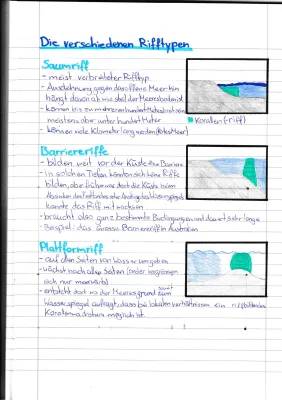 Die verschiedenen Rifftypen
Saumriff
- meist verbreiteter Rifftyp
- Ausdehnung gegen das offene Meer hin
hängt davon ab wie steil der Meeresboden ist
- können bis zu mehreren hundert Meter breit sein
meistens aber unter hundert Meter
- können viele Kilometer lang werden (Rotes Meer)
Korallen(-riff)
Barriereriffe
- bilden weit vor der Küste eine Barriere
- in solchen Tiefen könnten sich keine Riffe
bilden, aber früher war dort die Küste, beim
Absinken des
konnte das Riff mit wachsen
- braucht also ganz bestimmte Bedingungen und dauert sehr lange
- Beispiel: das Grosse Barriereriff in Australien
Plattformriff
- auf allen Seiten von Wasser umgeben
- wächst nach allen Seiten (andere
sich nur meerwärts)
- entsteht dort wo der Meeresgrund somit zum
Wasserspiegel aufragt, dass bei lokalen Verhältnissen ein riffbildendes
Korallenwachstum möglich ist.